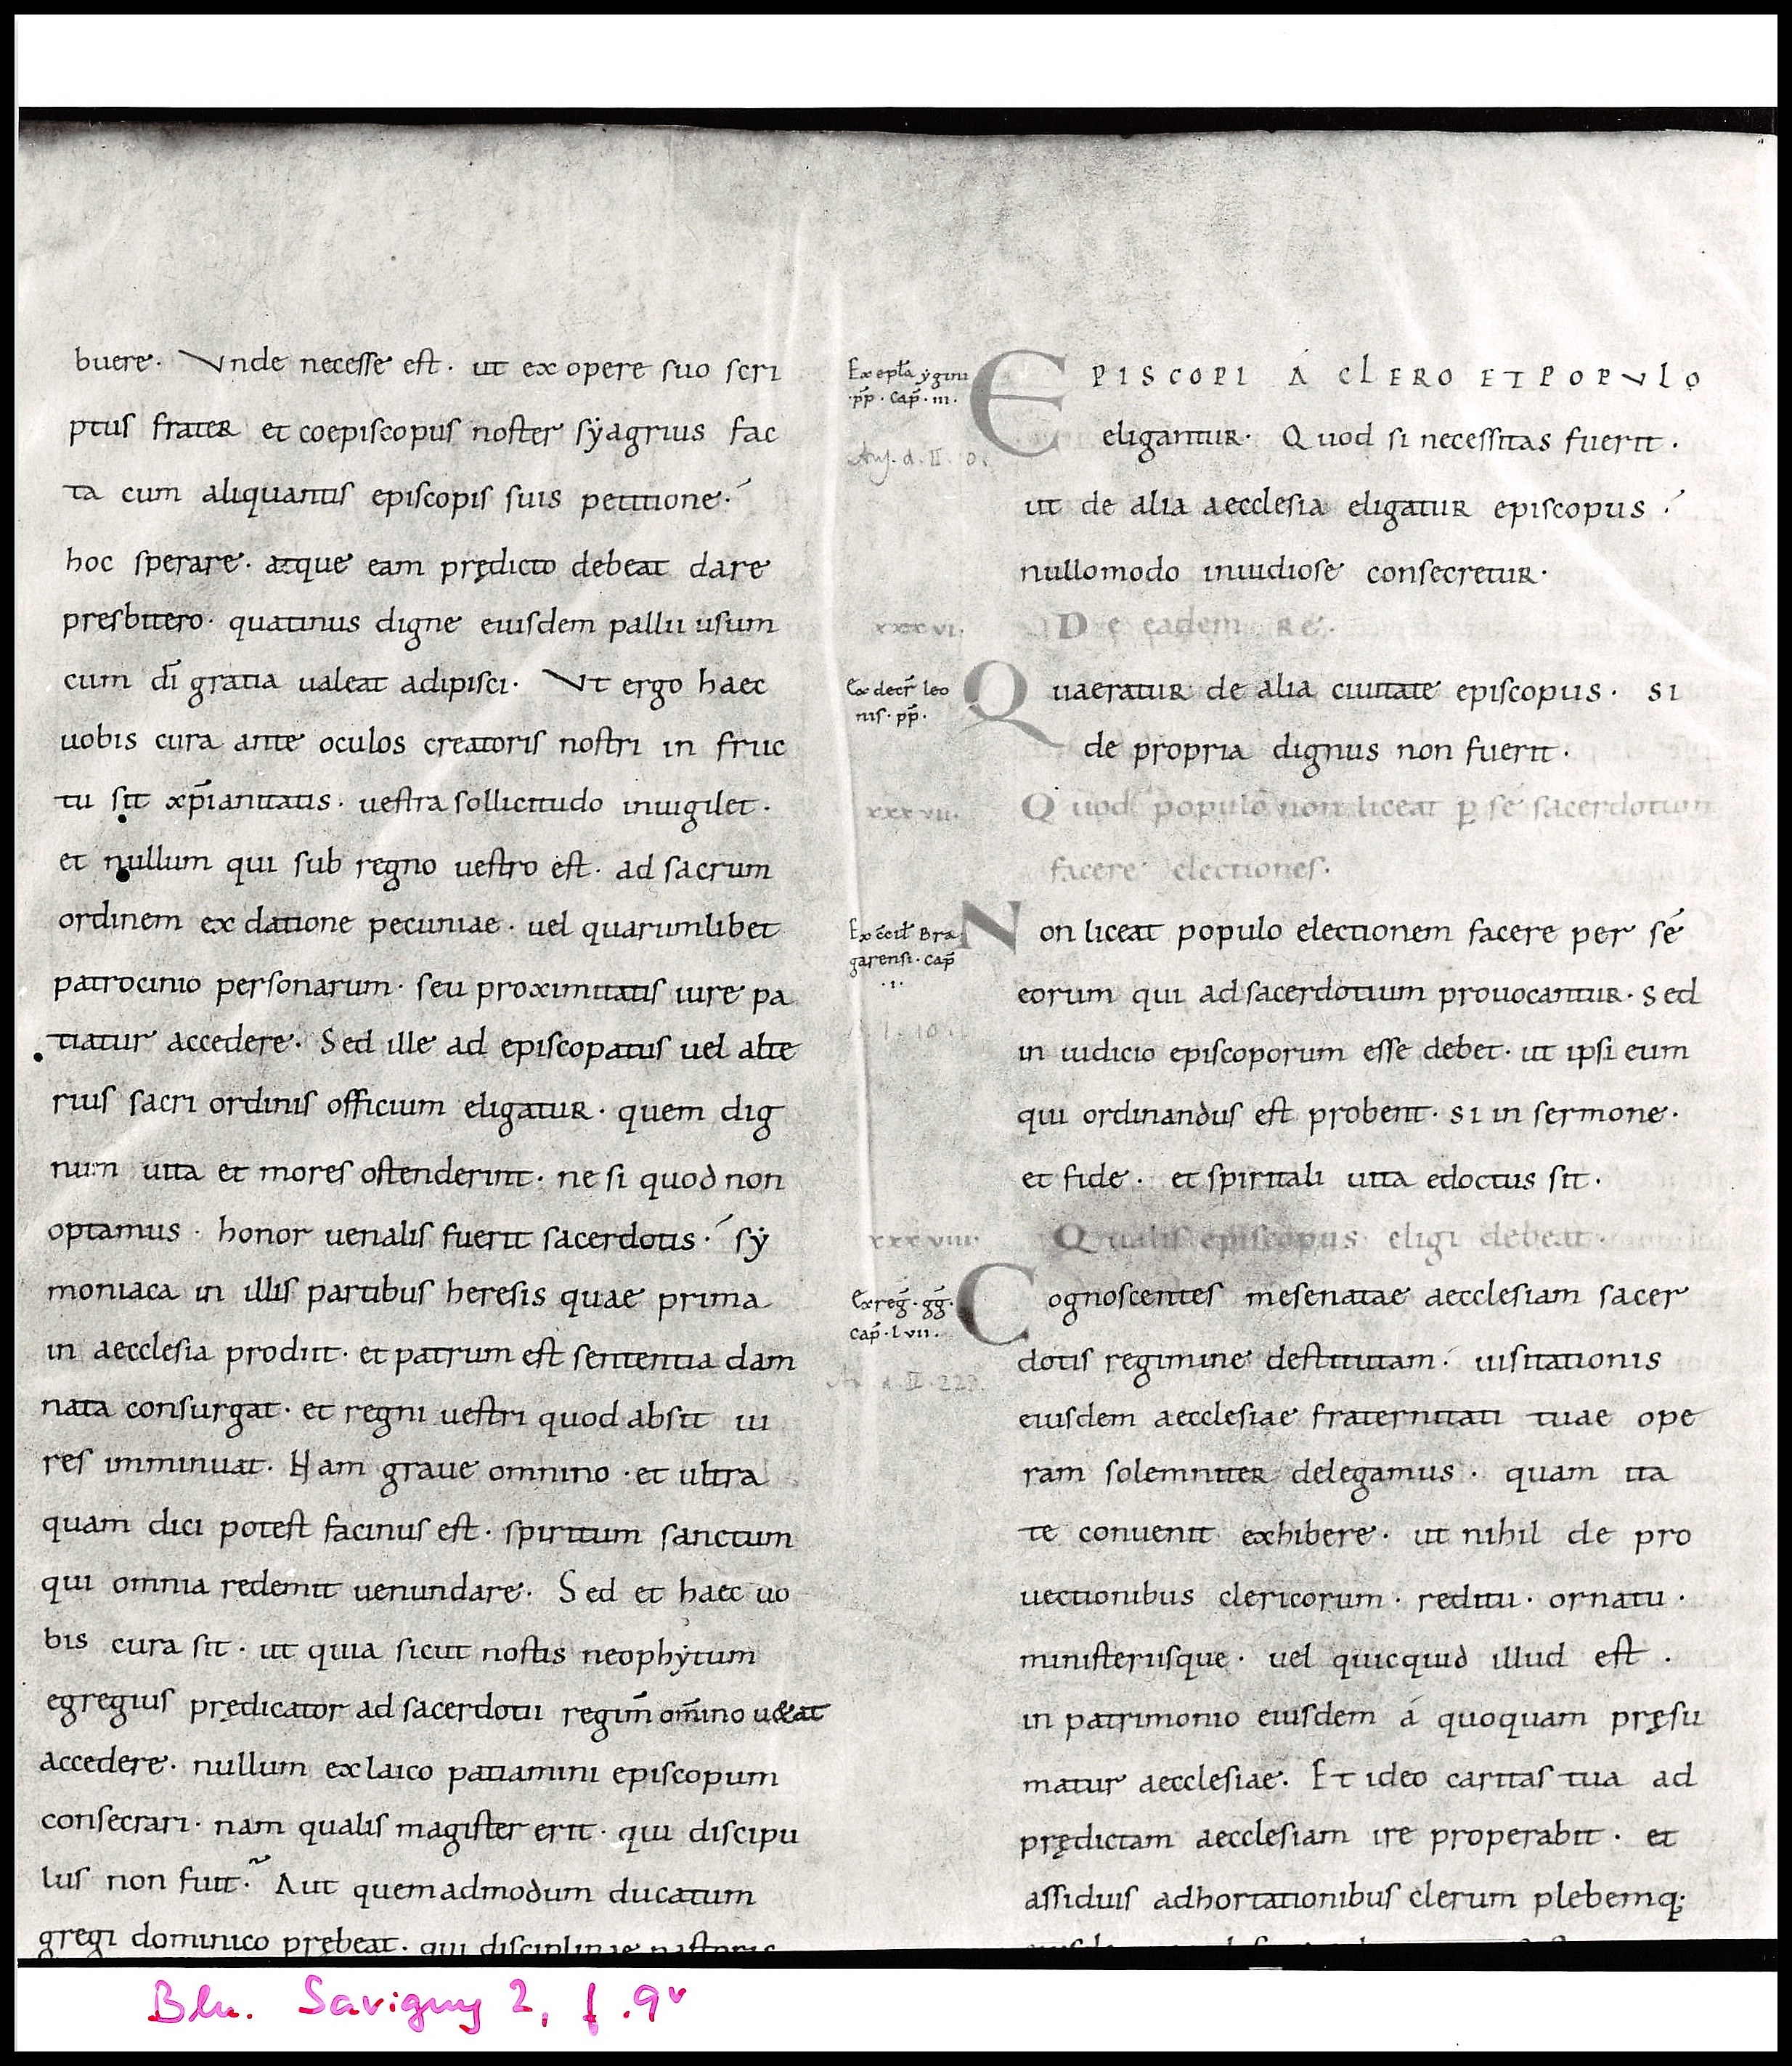 buere. Vnde necesse est. ut ex opere suo scri
ptus frater et coepiscopus noster sẏagrius fac
ta cum aliquantis episcopis suis petitione.
hoc sperare. atque eam prędicto debeat dare
presbitero. quatinus digne eiusdem pallii usum
cum dī gratia ualeat adipisci. Vt ergo haec
uobis cura ante oculos creatoris nostri in fruc
tu sit xp̄ianitatis. uestra sollicitudo inuigilet.
et nullum qui sub regno uestro est. ad sacrum
ordinem ex datione pecuniae. uel quarumlibet
patrocinio personarum. seu proximitatis iure pa
tiatur accedere. Sed ille ad episcopatus uel alte
rius sacri ordinis officium eligatur. quem dig
num uita et mores ostenderint. ne si quod non
optamus. honor uenalis fuerit sacerdotis. sẏ
moniaca in illis partibus heresis quae prima
in aecclesia prodiit. et patrum est sententia dam
nata consurgat. et regni uestri quod absit ui
res imminuat. Nam graue omnino. et ultra
quam dici potest facinus est. spiritum sanctum
qui omnia redemit uenundare. Sed et haec uo
bis cura sit. ut quia sicut nostis neophẏtum
egregius prędicator ad sacerdotii regim̄ om̄ino u&at
accedere. nullum ex laico patiamini episcopum
consecrari. nam qualis magister erit. qui discipu
lus non fuit. Aut quemadmodum ducatum
gregi dominico prębeat. qui disciplinae pastoris
Ex epl̄a ẏgini
.pp̄. cap̄. III.
EPISCOPI Á CLERO ET POPVLO
eligantur. Quod si necessitas fuerit.
ut de alia aecclesia eligatur episcopus.
nullomodo inuidiose consecretur.
xxxvi. De eadem re.
Ex decr̄ leo
nis. pp̄.
Quaeratur de alia ciuitate episcopus. si
de propria dignus non fuerit.
xxxvii. Quod populo non liceat ꝑ sé sacerdotum
facere electiones.
Ex c̄cil̄ Bra
garensi. cap̄
.I.
Non liceat populo electionem facere per sé
eorum qui ad sacerdotium prouocantur. sed
in iudicio episcoporum esse debet. ut ipsi eum
qui ordinandus est probent. si in sermone.
et fide. et spiritali uita edoctus sit.
xxxviii. Qualis episcopus eligi debeat.
Ex reg̅. gg̅.
Cap̄. lvii.
Cognoscentes mesenatae aecclesiam sacer
dotis regimine destitutam. uisitationis
eiusdem aecclesiae fraternitati tuae ope
ram solemniter delegamus. quam ita
te conuenit exhibere. ut nihil de pro
uectionibus clericorum. reditu. ornatu.
ministeriisque. uel quicquid illud est.
in patrimonio eiusdem á quoquam pręsu
matur aecclesiae. Et ideo caritas tua ad
prędictam aecclesiam ire properabit. et
assiduis adhortationibus clerum plebemq;
Bln. Savigny 2, f. 9v